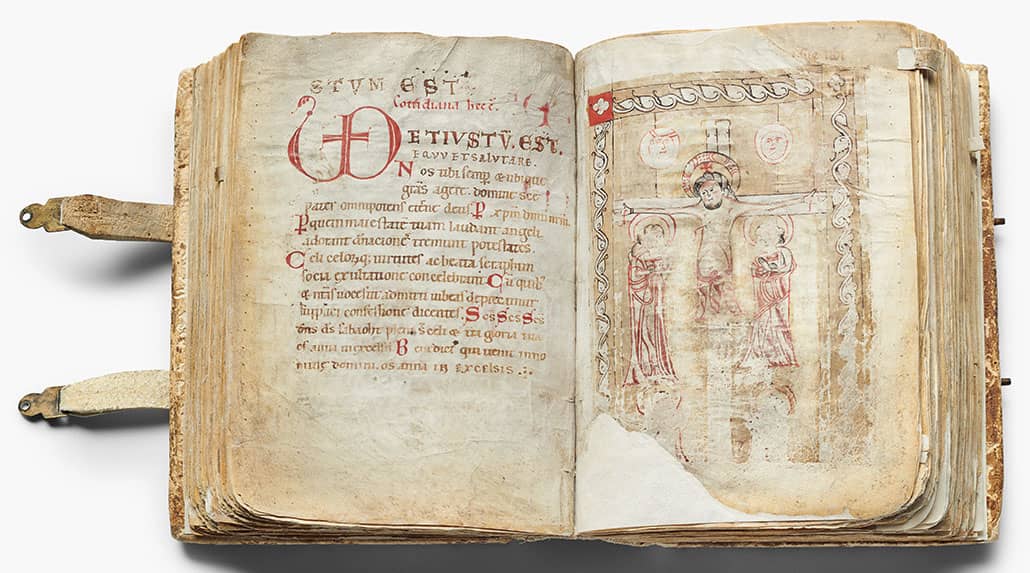 STUM EST
Cotidiana hec ē.
VERE ET IUSTŪ. EST.
EQUV ET SALUTARE.
Nos tibi semp̄ & ubique
gr̄as agere. domine s̄ce
pater omnipotens eterne deus P xp̄m dn̄m nr̄m.
P quem maiestatē tuam laudant angeli
adorant dn̄acionēs tremunt potestates
Celi celorq; uirtutes ac beata seraphim
socia exultatione concelebrant. Cū quib'
& nr̄as uoces ut admitti iubeas deprecamur
supplici confessione dicentes. Scs Scs Scs
dn̄s ds̄ sabaoth pleni s̄ celi & t̄ra gloria tua
osanna in excelsis Benedict' qui uenit in no
mine domini. osanna IN EXCELSIS